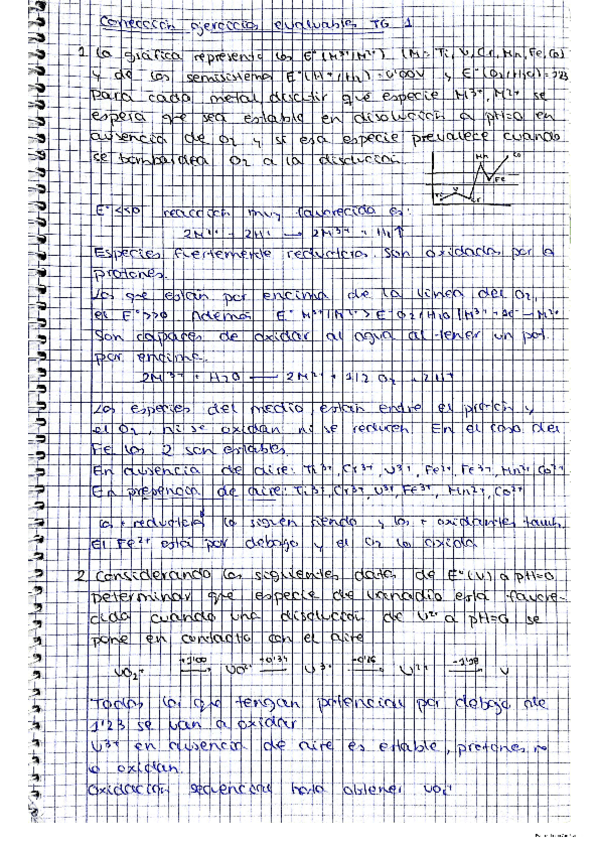 Corrección ejercicios evaluables T6 1
1. La gráfica representa los E°(M³⁺/M²⁺) (M: Ti, V, Cr, Mn, Fe, Co)
y de los semisistema E°(H⁺/H₂) = 0'00V y E°(O₂/H₂O) = 1'23
Para cada metal discutir qué especie M³⁺, M²⁺ se
espera que sea estable en disolución a pH=0 en
ausencia de O₂ y si esa especie prevalece cuando
se bombardea O₂ a la disolución.
Mn Co
Fe
V Cr
E°<<0 reacción muy favorecida es:
2M²⁺ + 2H⁺ → 2M³⁺ + H₂↑
Especies fuertemente reductoras. Son oxidadas por la
protones.
Los que están por encima de la línea del O₂,
el E°>>0 Además E° M³⁺/M²⁺ > E° O₂/H₂O (M³⁺ + 1e⁻ → M²⁺
Son capaces de oxidar al agua al tener un pot.
por encima.
2M³⁺ + H₂O → 2M²⁺ + 1/2 O₂ + 2H⁺
Las especies del medio, están entre el protón y
el O₂, ni se oxidan ni se reducen. En el caso del
Fe los 2 son estables.
En ausencia de aire: Ti³⁺, Cr³⁺, V³⁺, Fe²⁺, Fe³⁺, Mn²⁺, Co²⁺
En presencia de aire: Ti³⁺, Cr³⁺, V³⁺, Fe³⁺, Mn²⁺, Co²⁺
La + reductora lo siguen siendo y los + oxidantes tamb.
El Fe²⁺ está por debajo y el O₂ lo oxida
2. Considerando los siguientes datos de E°(V) a pH=0
Determinar que especie de vanadio está favore-
cida cuando una disolución de V²⁺ a pH=0 se
pone en contacto con el aire
VO₂⁺ +1'00 VO²⁺ +0'34 V³⁺ -0'26 V²⁺ -1'18 V
Todas las que tengan potencias por debajo de
1'23 se van a oxidar
V³⁺ en ausencia de aire es estable, protones no
lo oxidan.
Oxidación secuencial hasta obtener VO₂⁺